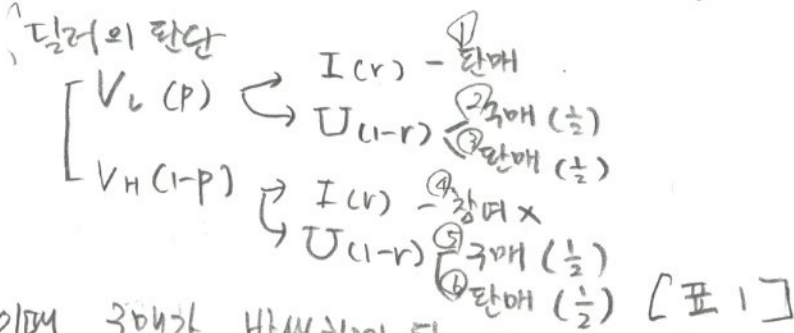 딜러의 판단
V_L (P) I(r) - ① 판매
U(1-r) ② 구매 (1/2)
③ 판매 (1/2)
V_H (1-P) I(r) - ④ 참여 x
U(1-r) ⑤ 구매 (1/2)
⑥ 판매 (1/2) [표 1]
이때 구매가